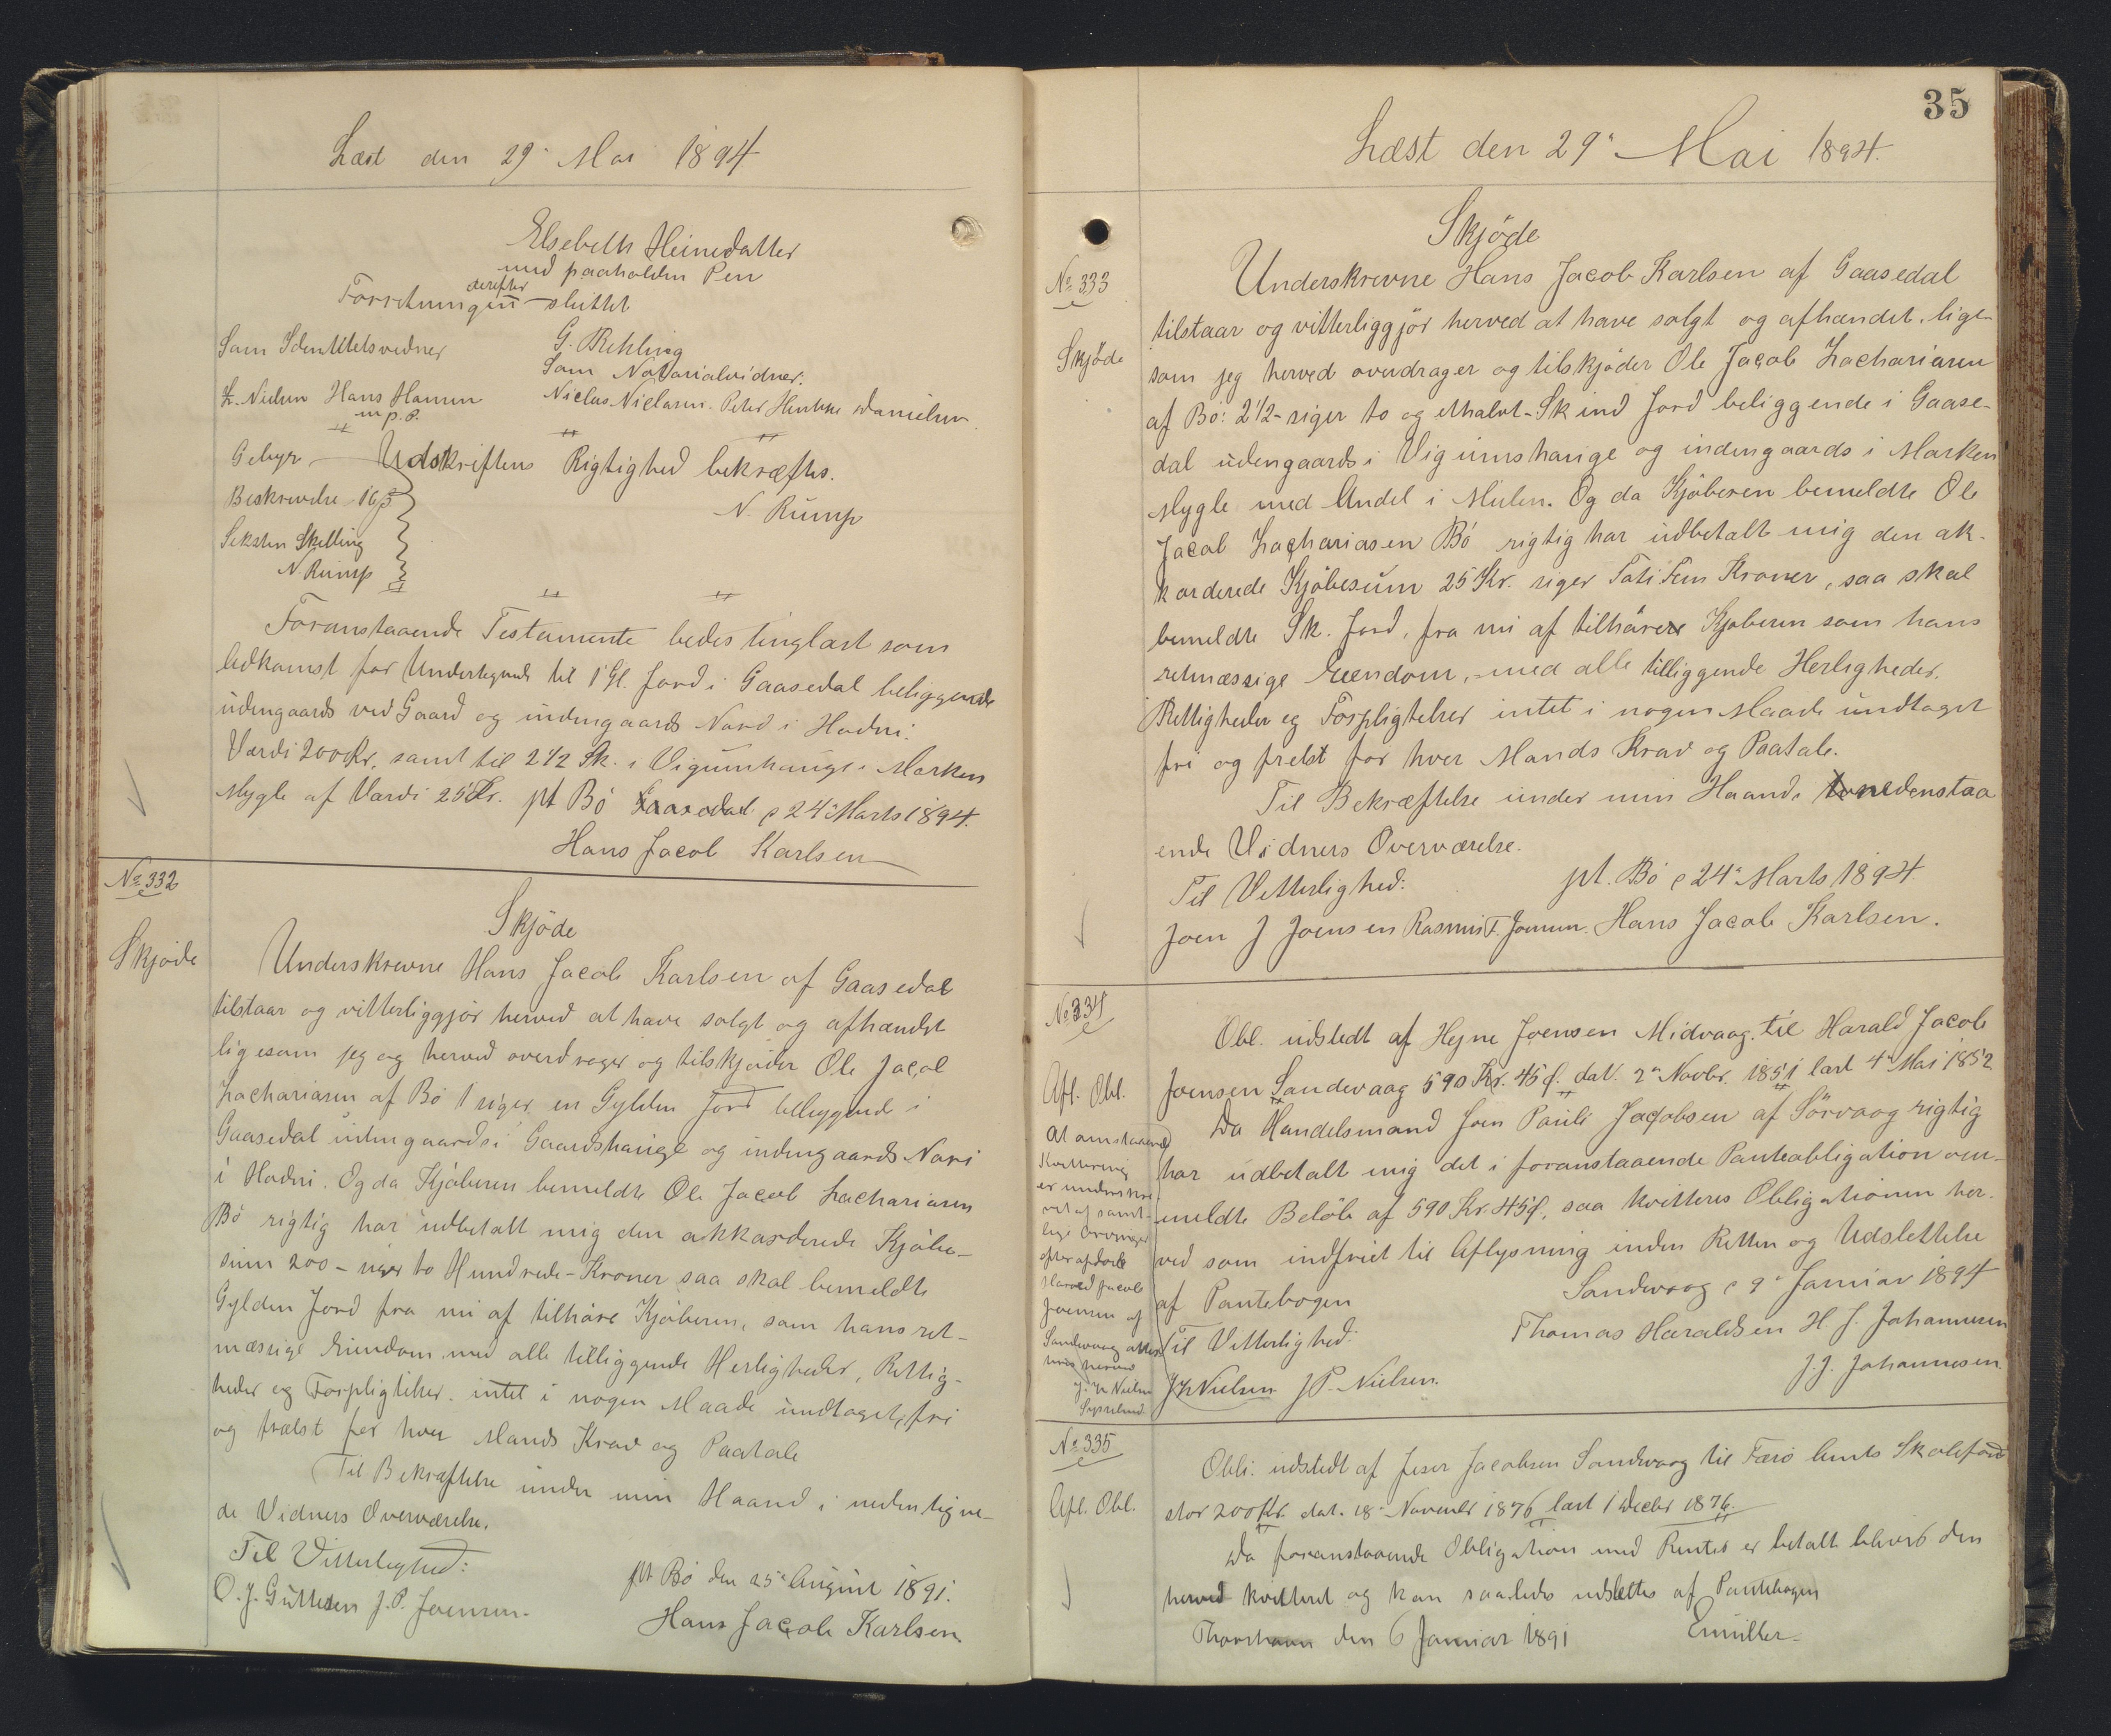 Læst den 29' Mai 1894
Elsebeth Heinesdatter
med paaholden Pen
derefter
Forretningen sluttet
Som Identitetsvidner
G. Rehling
Som Notarialvidner.
Z. Nielsen Hans Hansen
Niclas Niclasen. Peter Danielsen
m. p. P.
Gebyr
Udskriftens Rigtighed bekræftes.
Beskrivelse 16 ß
N. Rump
Seksten Skilling
N. Rump
Foranstaaende Testamente bedes tinglæst som
Adkomst for Undertegnede til 1 Gl. Jord i Gaasedal beliggende
udengaards ved Gaard og indengaards Nord i Hadni.
Værdi 200 Kr. samt til 2 1/2 Sk. i Vigumhauge i Marken
Mygle af Værdi 25 Kr. pt Bø Gaasedal d 24' Marts 1894.
Hans Jacob Karlsen
No 332
Skjøde
Skjøde
Underskrevne Hans Jacob Karlsen af Gaasedal
tilstaar og vitterliggjør herved at have solgt og afhændet
ligesom jeg og herved overdrager og tilskjøder Ole Jacob
Zachariasen af Bø 1 siger en Gylden Jord beliggende i
Gaasedal udengaards i Gaardshauge og indengaards Nori
i Hadni. Og da Kjøberen bemeldte Ole Jacob Zachariasen
Bø rigtig har udbetalt mig den akkorderede Kjøbe-
sum 200 - siger to Hundrede - Kroner saa skal bemeldte
Gylden Jord fra nu af tilhøre Kjøberen, som hans ret-
mæssige Eiendom med alle tilliggende Herligheder, Rettig-
heder og Forpligtelser. intet i nogen Maade undtaget, fri
og frælst for hver Mands Krav og Paatale
Til Bekræftelse under min Haand i nedentegne-
de Vidners Overværelse.
Til Vitterlighed:
pt Bø den 25' August 1891.
O. J. Guttesen J. P. Joensen.
Hans Jacob Karlsen.
35
Læst den 29' Mai 1894.
Skjøde
No 333
Skjøde
Underskrevne Hans Jacob Karlsen af Gaasedal
tilstaar og vitterliggjør herved at have solgt og afhændet, lige-
som jeg herved overdrager og tilskjøder Ole Jacob Zachariasen
af Bø: 2 1/2 - siger to og ethalvt - Skind Jord beliggende i Gaase-
dal udengaards i Vigumshauge og indengaards i Marken
Mygle med Andel i Mulen. Og da Kjøberen bemeldte Ole
Jacob Zachariasen Bø rigtig har udbetalt mig den ak-
korderede Kjøbesum 25 Kr. siger Toti Fem Kroner, saa skal
bemeldte Sk. Jord, fra nu af tilhøre Kjøberen som hans
retmæssige Eiendom, med alle tilliggende Herligheder,
Rettigheder og Forpligtelser intet i nogen Maade undtaget
fri og frelst for hver Mands Krav og Paatale.
Til Bekræftelse under min Haand i nedenstaa
ende Vidners Overværelse.
pt. Bø d 24' Marts 1894
Til Vitterlighed:
Joen J Joensen Rasmus F. Joensen. Hans Jacob Karlsen.
No 334
Afl. Obl.
Obl. udstedt af Hejne Joensen Midvaag. til Harald Jacob
Joensen Sandevaag 590 Kr. 45 Ø. dat. 2' Novbr. 1851 læst 4' Mai 1852
Da Handelsmand Joen Pauli Jacobsen af Sørvaag rigtig
har udbetalt mig det i foranstaaende Panteobligation om-
meldte Beløb af 590 Kr. 45 Ø, saa kvitteres Obligationen her-
ved som indfriet til Aflysning inden Retten og Udslettelse
af Pantebogen
Sandevaag d 9' Januar 1894
Thomas Haraldsen H. J. Johannesen
Til Vitterlighed:
J. J. Johannesen
J Z Nielsen J P. Nielsen.
At omstaaende
Kvittering
er underskre-
vet af samt-
lige Arvinger
efter afdøde
Harald Jacob
Joensen af
Sandevaag attes-
teres herved
J. Z. Nielsen
Sysselmd.
No 335
Afl. Obl.
Obli. udstedt af Joser Jacobsen Sandevaag til Færø Amts Skolefond
stor 200 Kr. dat. 18' November 1876 læst 1 Decbr 1876.
Da foranstaaende Obligation med Renter er betalt bliver den
herved kvitteret og kan saaledes udslettes af Pantebogen
Thorshavn den 6 Januar 1891 Emüller